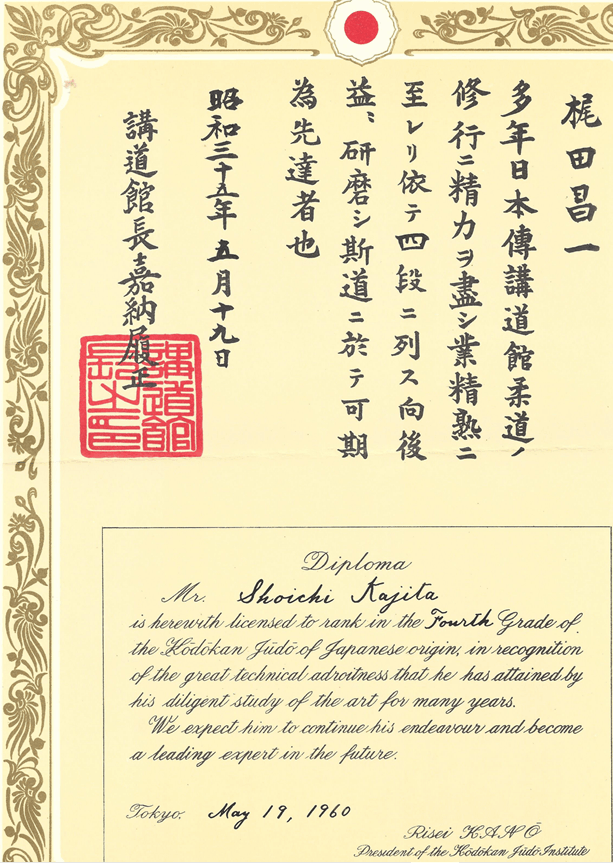 梶田昌一
多年日本傳講道館柔道ノ
修行ニ精力ヲ盡シ業精熟ニ
至レリ依テ四段ニ列ス向後
益〻研磨シ斯道ニ於テ可期
為先達者也
昭和三十五年五月十九日
講道館長嘉納履正
講道館
長之印
Diploma
Mr. Shoichi Kajita
is herewith licensed to rank in the Fourth Grade of
the Kōdōkan Jūdō of Japanese origin, in recognition
of the great technical adroitness that he has attained by
his diligent study of the art for many years.
We expect him to continue his endeavour and become
a leading expert in the future.
Tokyo. May 19, 1960
Risei KANŌ
President of the Kōdōkan Jūdō Institute